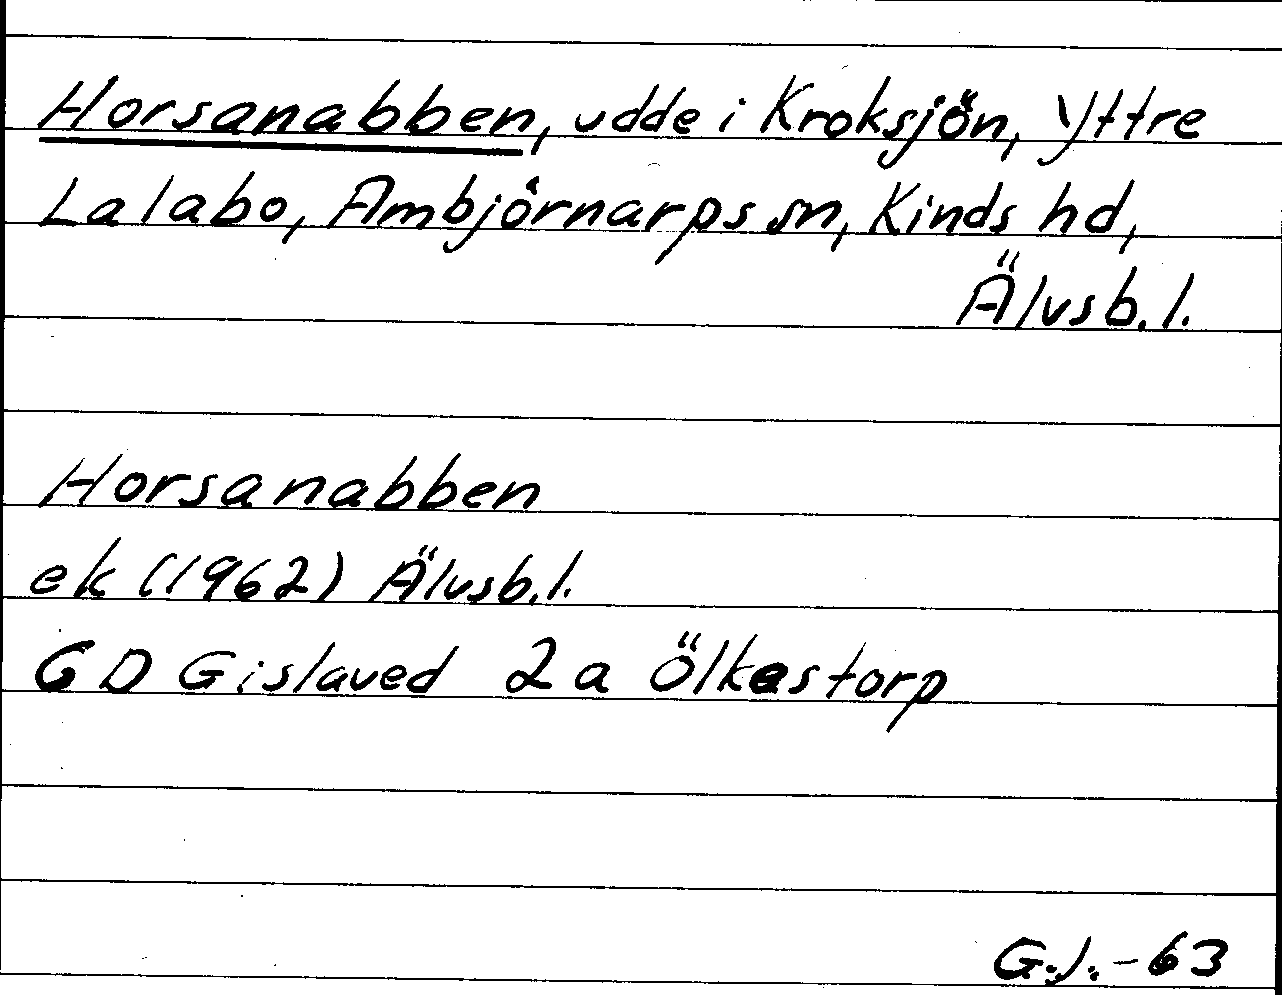 Horsanabben, udde i Kroksjön, Yttre
Lalabo, Ambjörnarps sn, Kinds hd,
Älvsb. l.
Horsanabben
ek (1962) Älvsb. l.
GD Gislaved 2a Ölkastorp
G.J. -63